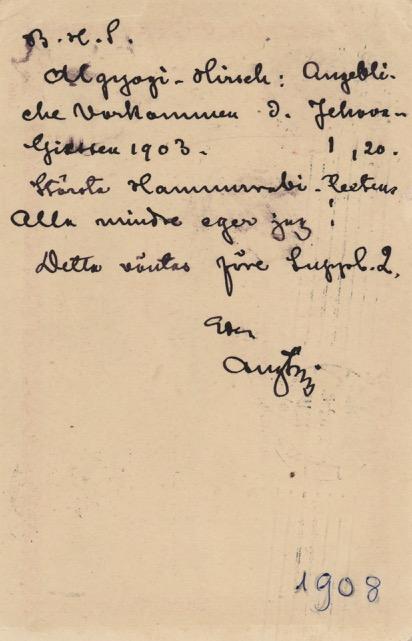 B. H. S.
Algyogi-Hirsch: Angebli-
che Vorkommen d. Jehova-
Giessen 1903. 1,20.
Största Hammurabi-
Alla mindre eger jag!
Detta väntas före Suppl. 2.
Eder
1908